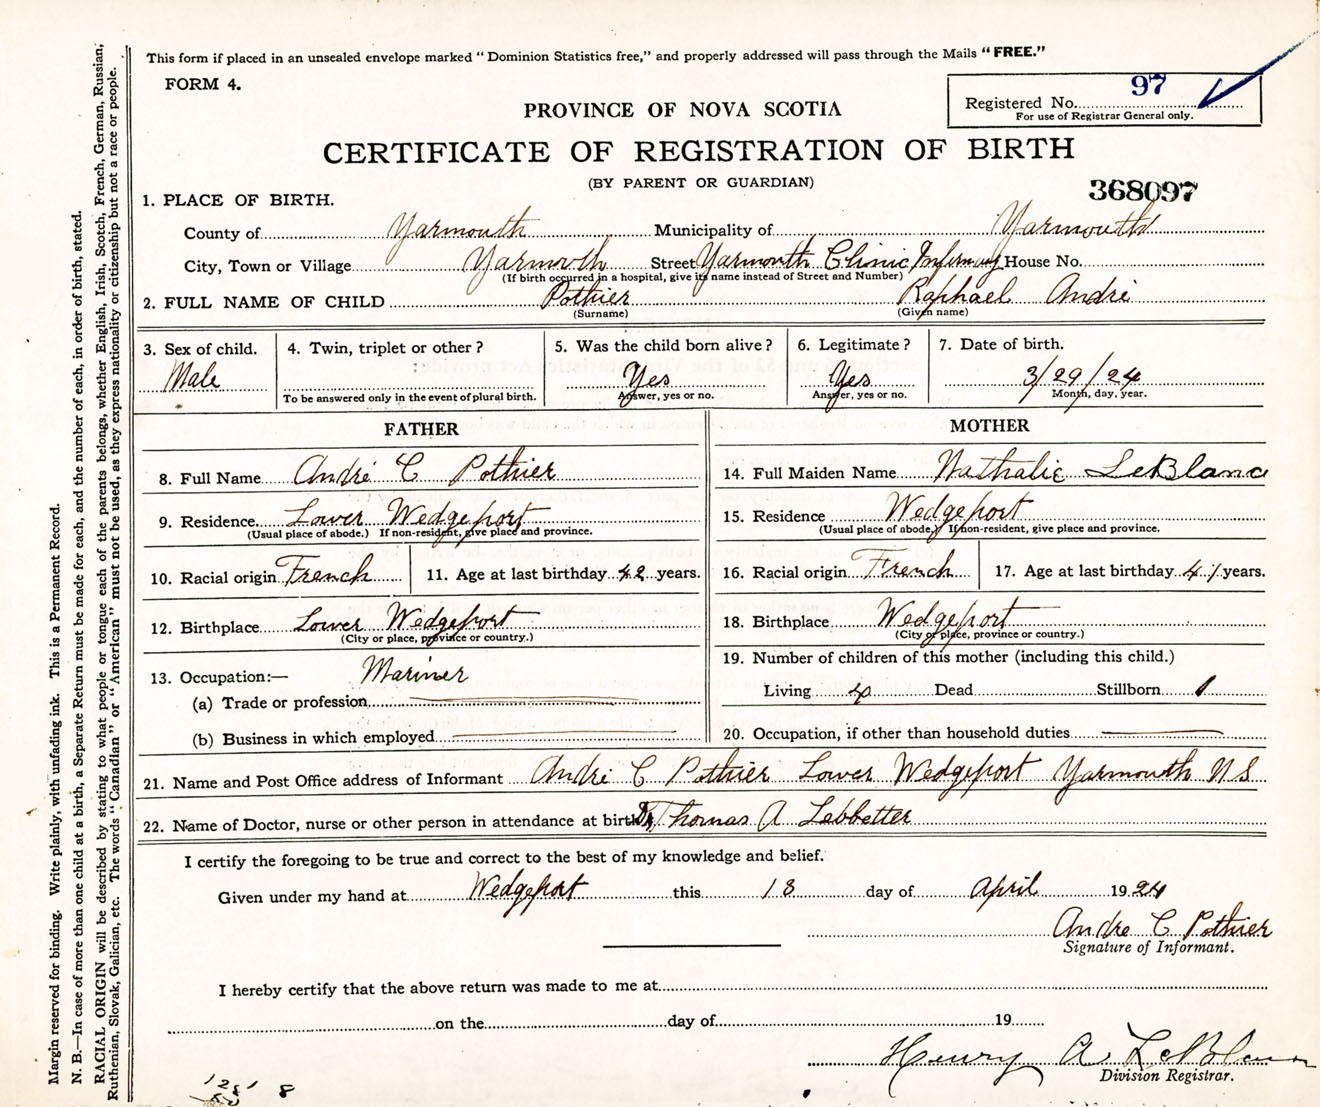 This form if placed in an unsealed envelope marked "Dominion Statistics free," and properly addressed will pass through the Mails "FREE."
FORM 4.
Registered No. 97
For use of Registrar General only.
PROVINCE OF NOVA SCOTIA
CERTIFICATE OF REGISTRATION OF BIRTH
(BY PARENT OR GUARDIAN)
368097
1. PLACE OF BIRTH.
County of Yarmouth Municipality of Yarmouth
City, Town or Village Yarmouth Street Yarmouth Clinic Infirmary House No.
(If birth occurred in a hospital, give its name instead of Street and Number)
2. FULL NAME OF CHILD Pothier Raphael André
(Surname) (Given name)
3. Sex of child. 4. Twin, triplet or other? 5. Was the child born alive? 6. Legitimate? 7. Date of birth.
Male Yes Yes 3/29/24
To be answered only in the event of plural birth. Answer, yes or no. Answer, yes or no. Month, day, year.
FATHER MOTHER
8. Full Name André C Pothier 14. Full Maiden Name Nathalie LeBlanc
9. Residence Lower Wedgeport 15. Residence Wedgeport
(Usual place of abode.) If non-resident, give place and province. (Usual place of abode.) If non-resident, give place and province.
10. Racial origin French 11. Age at last birthday 42 years. 16. Racial origin French 17. Age at last birthday 41 years.
12. Birthplace Lower Wedgeport 18. Birthplace Wedgeport
(City or place, province or country.) (City or place, province or country.)
13. Occupation:— Mariner 19. Number of children of this mother (including this child.)
(a) Trade or profession Living 4 Dead Stillborn 1
(b) Business in which employed 20. Occupation, if other than household duties
21. Name and Post Office address of Informant André C Pothier Lower Wedgeport Yarmouth N S
22. Name of Doctor, nurse or other person in attendance at birth Dr Thomas A Lebbetter
I certify the foregoing to be true and correct to the best of my knowledge and belief.
Given under my hand at Wedgeport this 18 day of April 1924
Andre C Pothier
Signature of Informant.
I hereby certify that the above return was made to me at
on the day of 19
Henry A. LeBlanc
Division Registrar.
8
Margin reserved for binding. Write plainly, with unfading ink. This is a Permanent Record.
N. B.—In case of more than one child at a birth, a Separate Return must be made for each, and the number of each, in order of birth, stated.
RACIAL ORIGIN will be described by stating to what people or tongue each of the parents belongs, whether English, Irish, Scotch, French, German, Russian,
Ruthenian, Slovak, Galician, etc. The words "Canadian" or "American" must not be used, as they express nationality or citizenship but not a race or people.